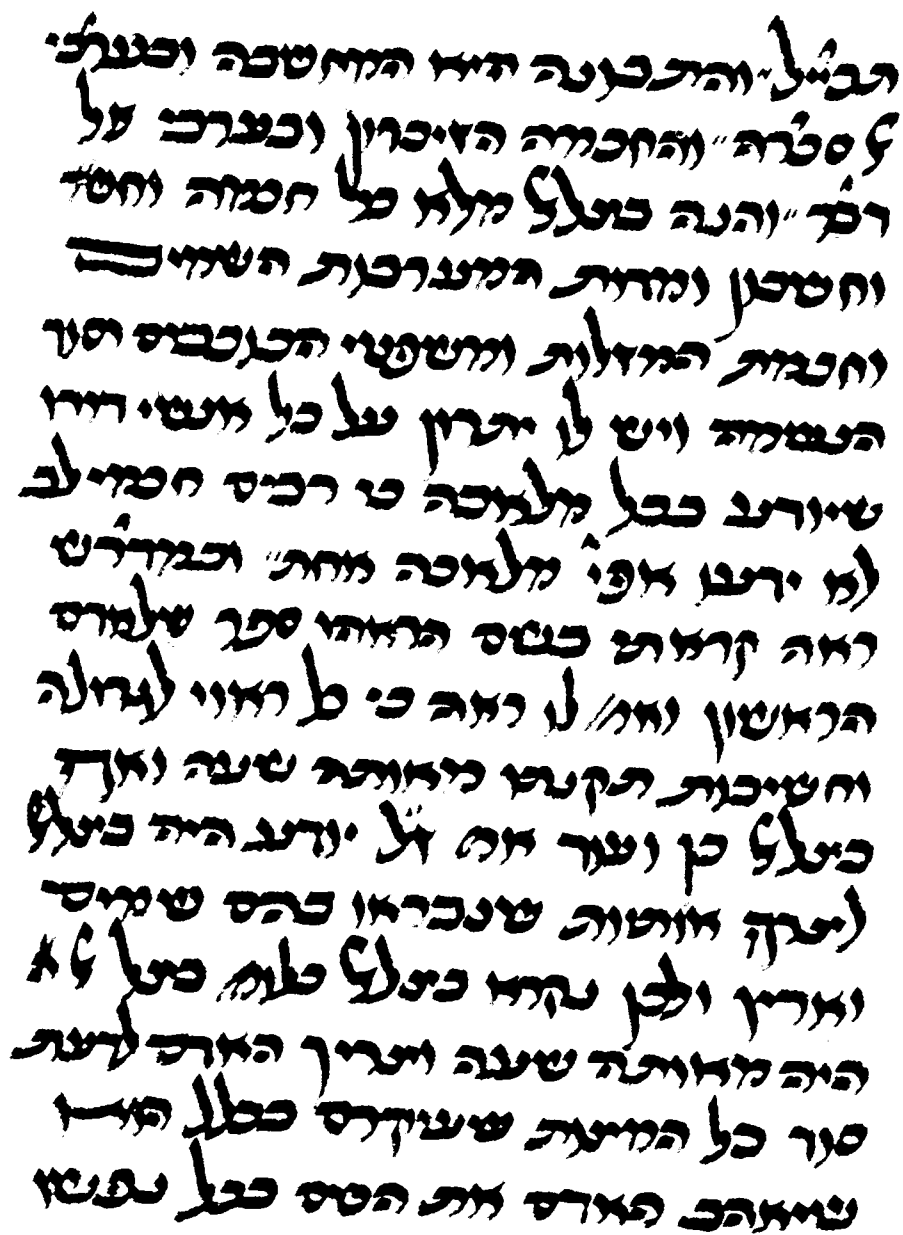 תב״ל״ והתבונה היא המחשבה ובערבי
ל ספרה״ והחכמה הזיכרון ובערבי על
דכר״ והנה בצלאל מלא כל חכמה וחסד
וחשבון ומדות המערכות השמי
וחכמת המזלות ומשפטי הכוכבים וסוד
הנשמה ויש לו יתרון על כל אנשי דורו
שיודע בכל מלאכה כי רבים חכמי לב
לא ידעו אפי׳ מלאכה אחת״ ובמדרש
ראה קראתי בשם הראהו ספר שלאדם
הראשון ואמ׳ לו ראה כי כל ראוי לגדולה
וחשיבות תקנתיו מאותה שעה ואף
בצלאל כן ועוד אמ׳ ז״ל יודע היה בצלאל
לצרף אותיות שנבראו בהם שמים
וארץ ולכן נקרא בצלאל כלומ׳ בצל אל
היה מאותה שעה וצריך האדם לדעת
סוד כל המצות שעיקרם בכלל הוא
שיאהב האדם את השם בכל נפשו